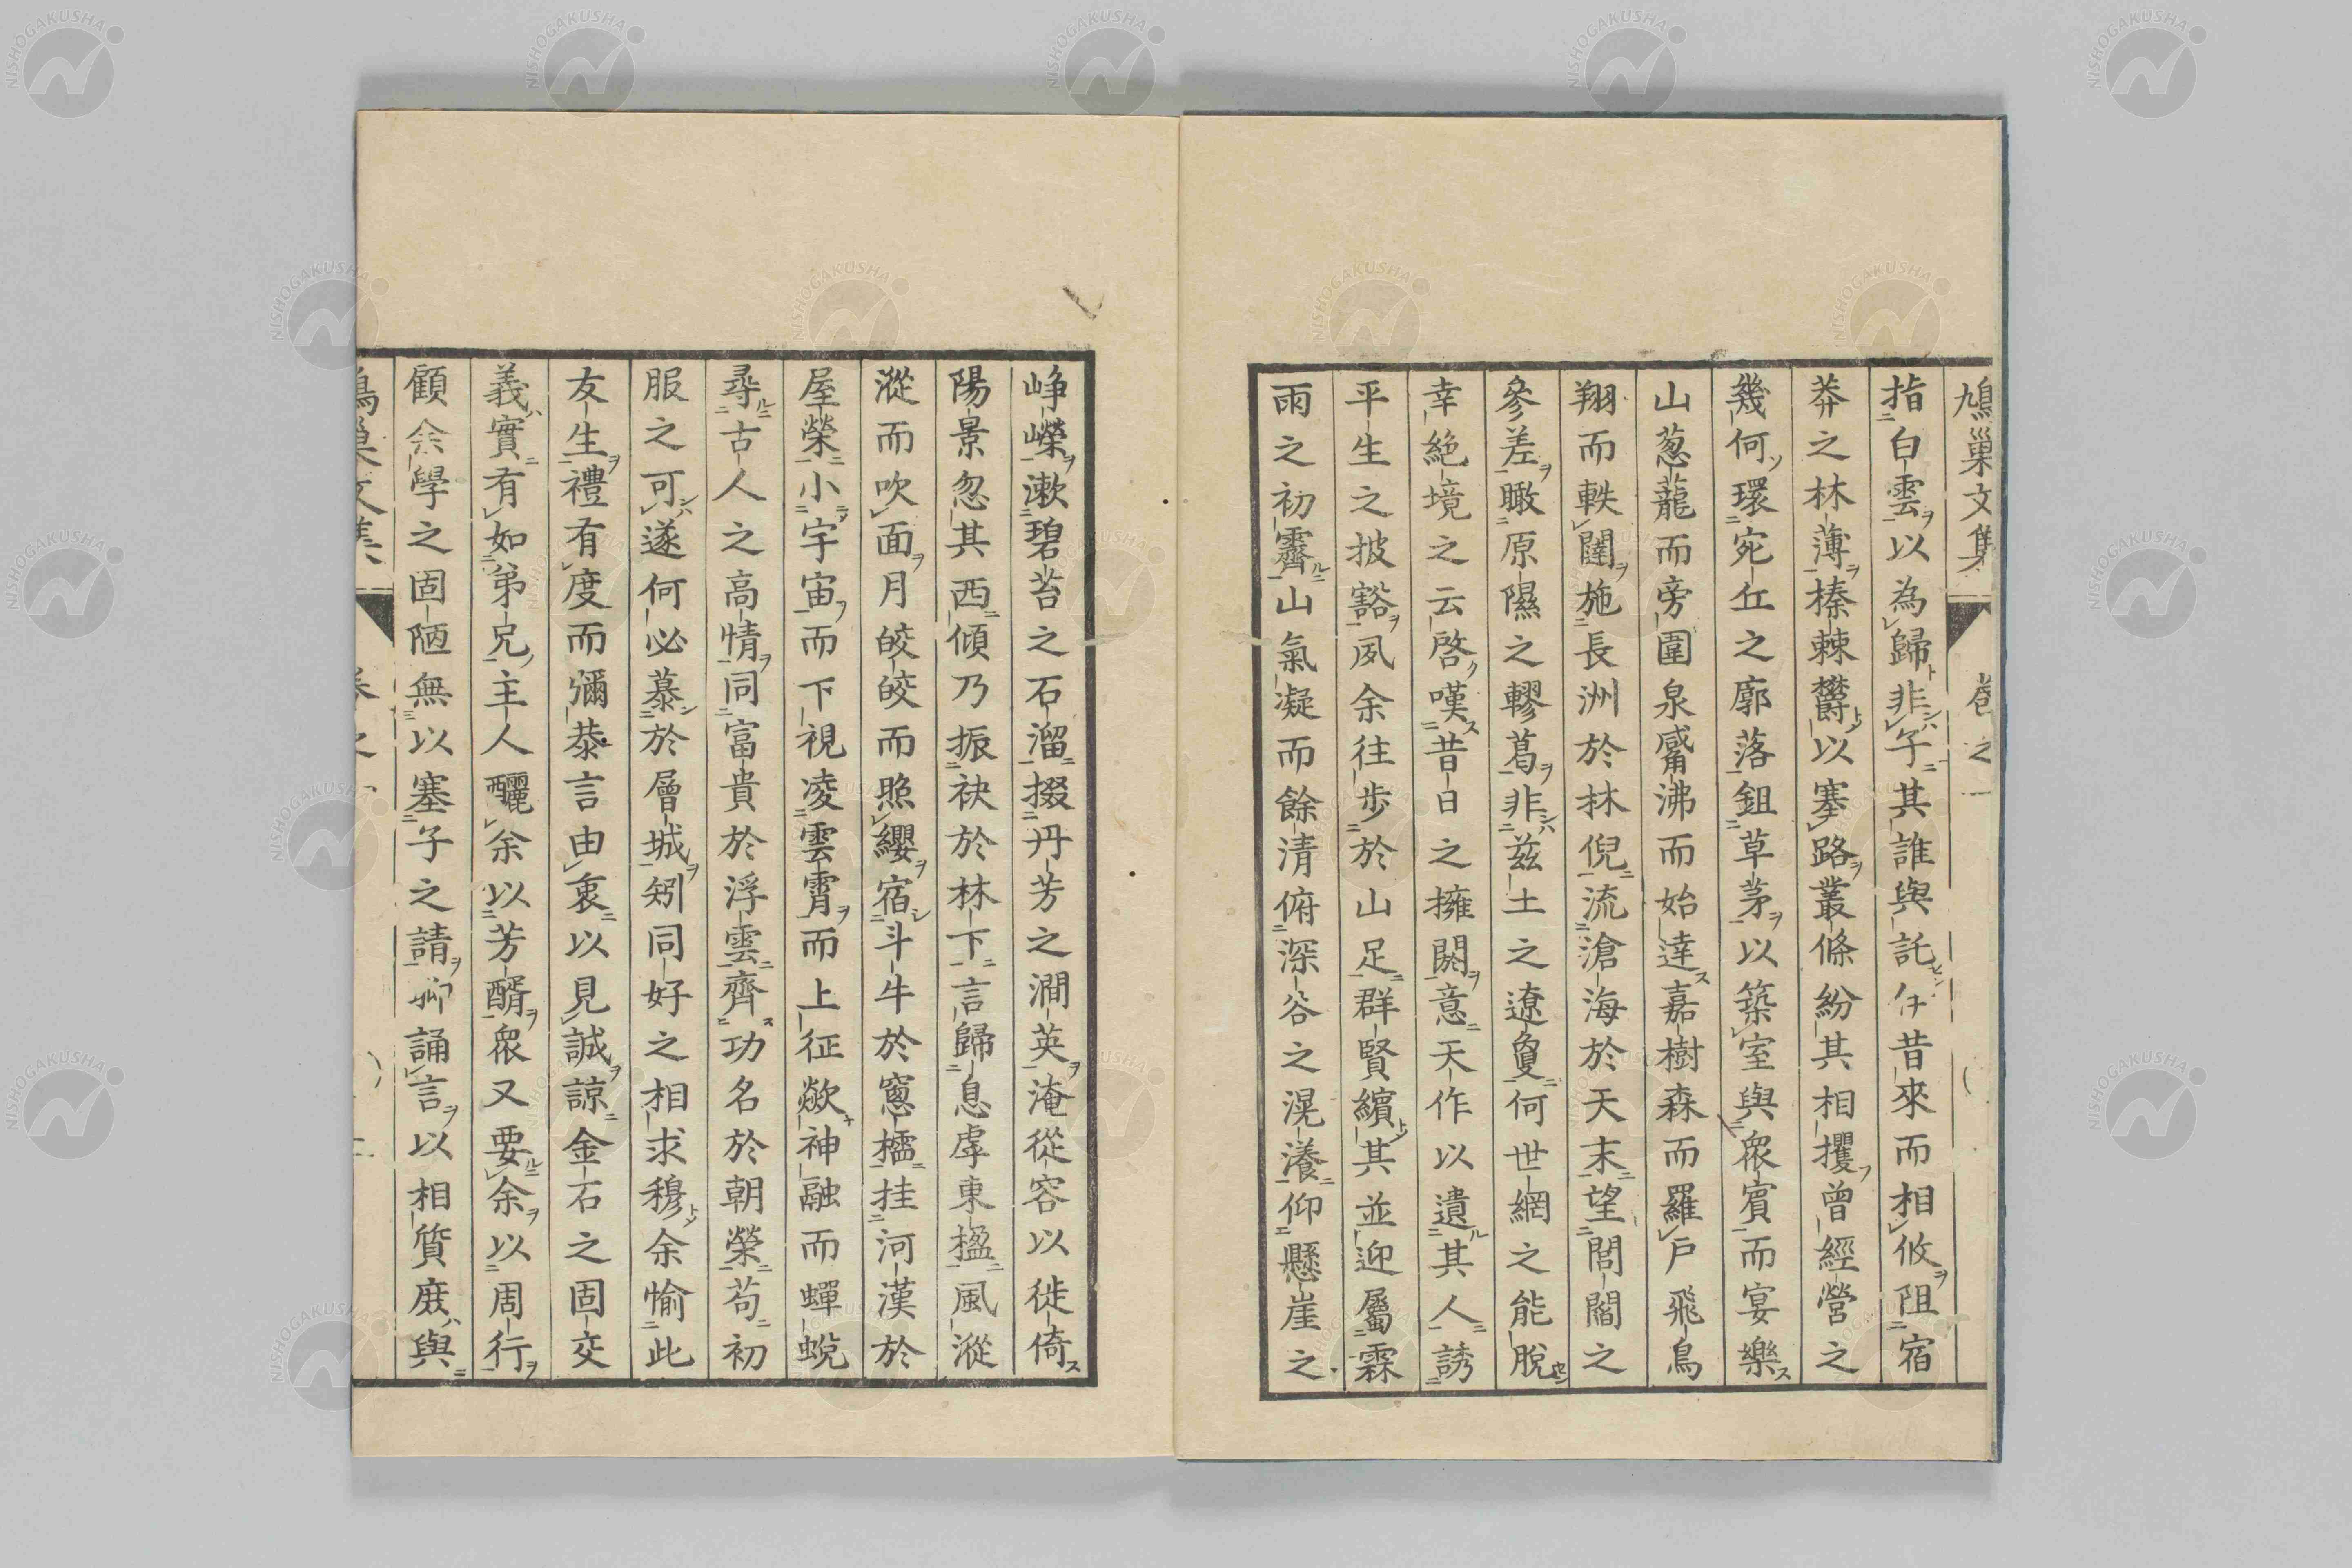 鳩巢文集 卷之一
指白雲以為歸非子其誰與託伊昔來而相攸阻宿
莽之林薄榛棘欝以塞路叢條紛其相攫曾經營之
幾何環宛丘之廓落鉏草茅以築室與衆賓而宴樂
山葱蘢而旁圍泉觱沸而始達嘉樹森而羅戶飛鳥
翔而軼闥施長洲於林倪流滄海於天末望閭閻之
參差瞰原隰之轇葛非茲土之遼敻何世網之能脫
幸絶境之云啓嘆昔日之擁閼意天作以遺其人誘
平生之披豁夙余往步於山足群賢繽其並迎屬霖
雨之初霽山氣凝而餘清俯深谷之滉瀁仰懸崖之
崢嶸漱碧苔之石溜掇丹芳之澗英淹從容以徙倚
陽景忽其西傾乃振袂於林下言歸息虖東楹風漎
漎而吹面月皎皎而照纓宿斗牛於窻櫺挂河漢於
屋榮小宇宙而下視凌雲霄而上征歘神融而蟬蛻
尋古人之高情同富貴於浮雲齊功名於朝榮苟初
服之可遂何必慕於層城矧同好之相求穆余愉此
友生禮有度而彌恭言由衷以見誠諒金石之固交
義實有如弟兄主人釃余以芳醑衆又要余以周行
顧余學之固陋無以塞子之請聊誦言以相質庶與
鳩巢文集 卷之一